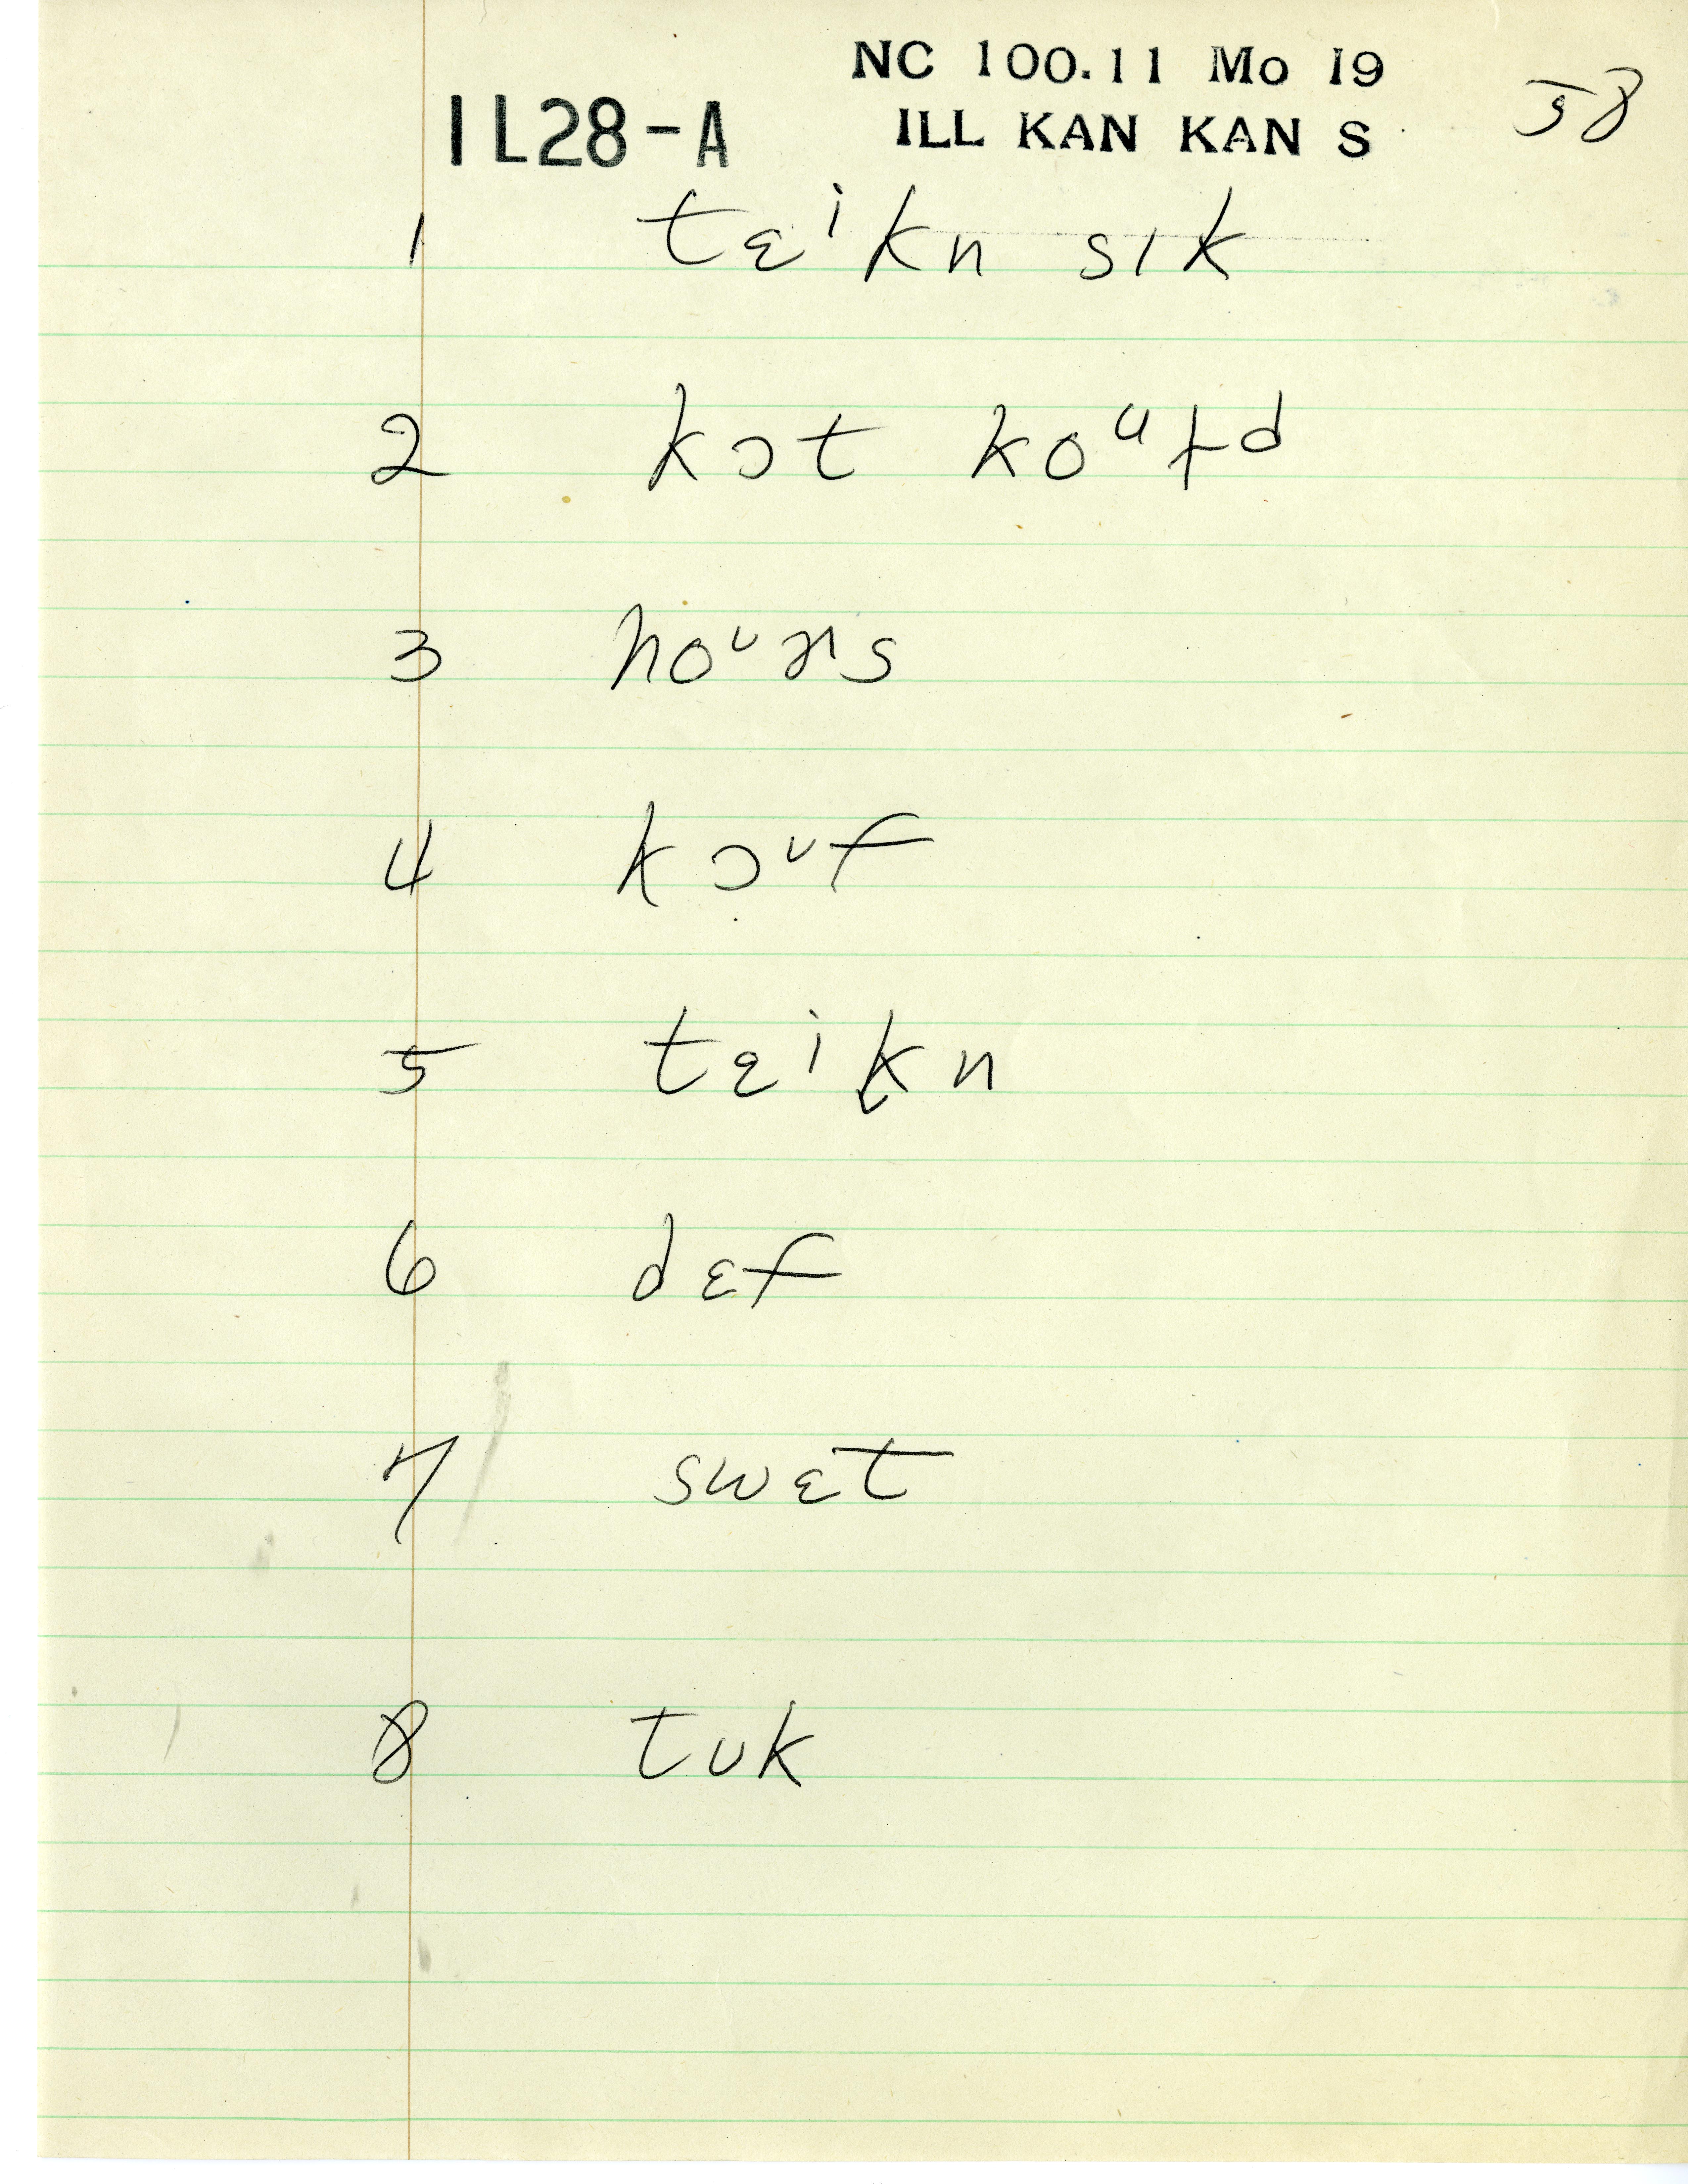 NC 100.11 Mo 19
IL28-A ILL KAN KAN S 58
1 tɛⁱkn sɪk
2 kɔt koᵘɫd
3 hoᵘɚs
4 kɔᵘf
5 tɛⁱk̬n
6 dɛf
7 swɛt
8 tʊk